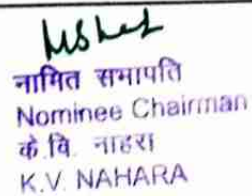 नामित सभापति
Nominee Chairman
के.वि. नाहरा
K.V. NAHARA